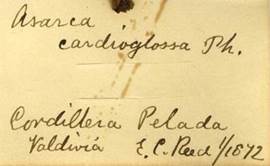 Asarca
cardioglossa Ph.
Cordillera Pelada
Valdivia E. C. Reed 1/1872